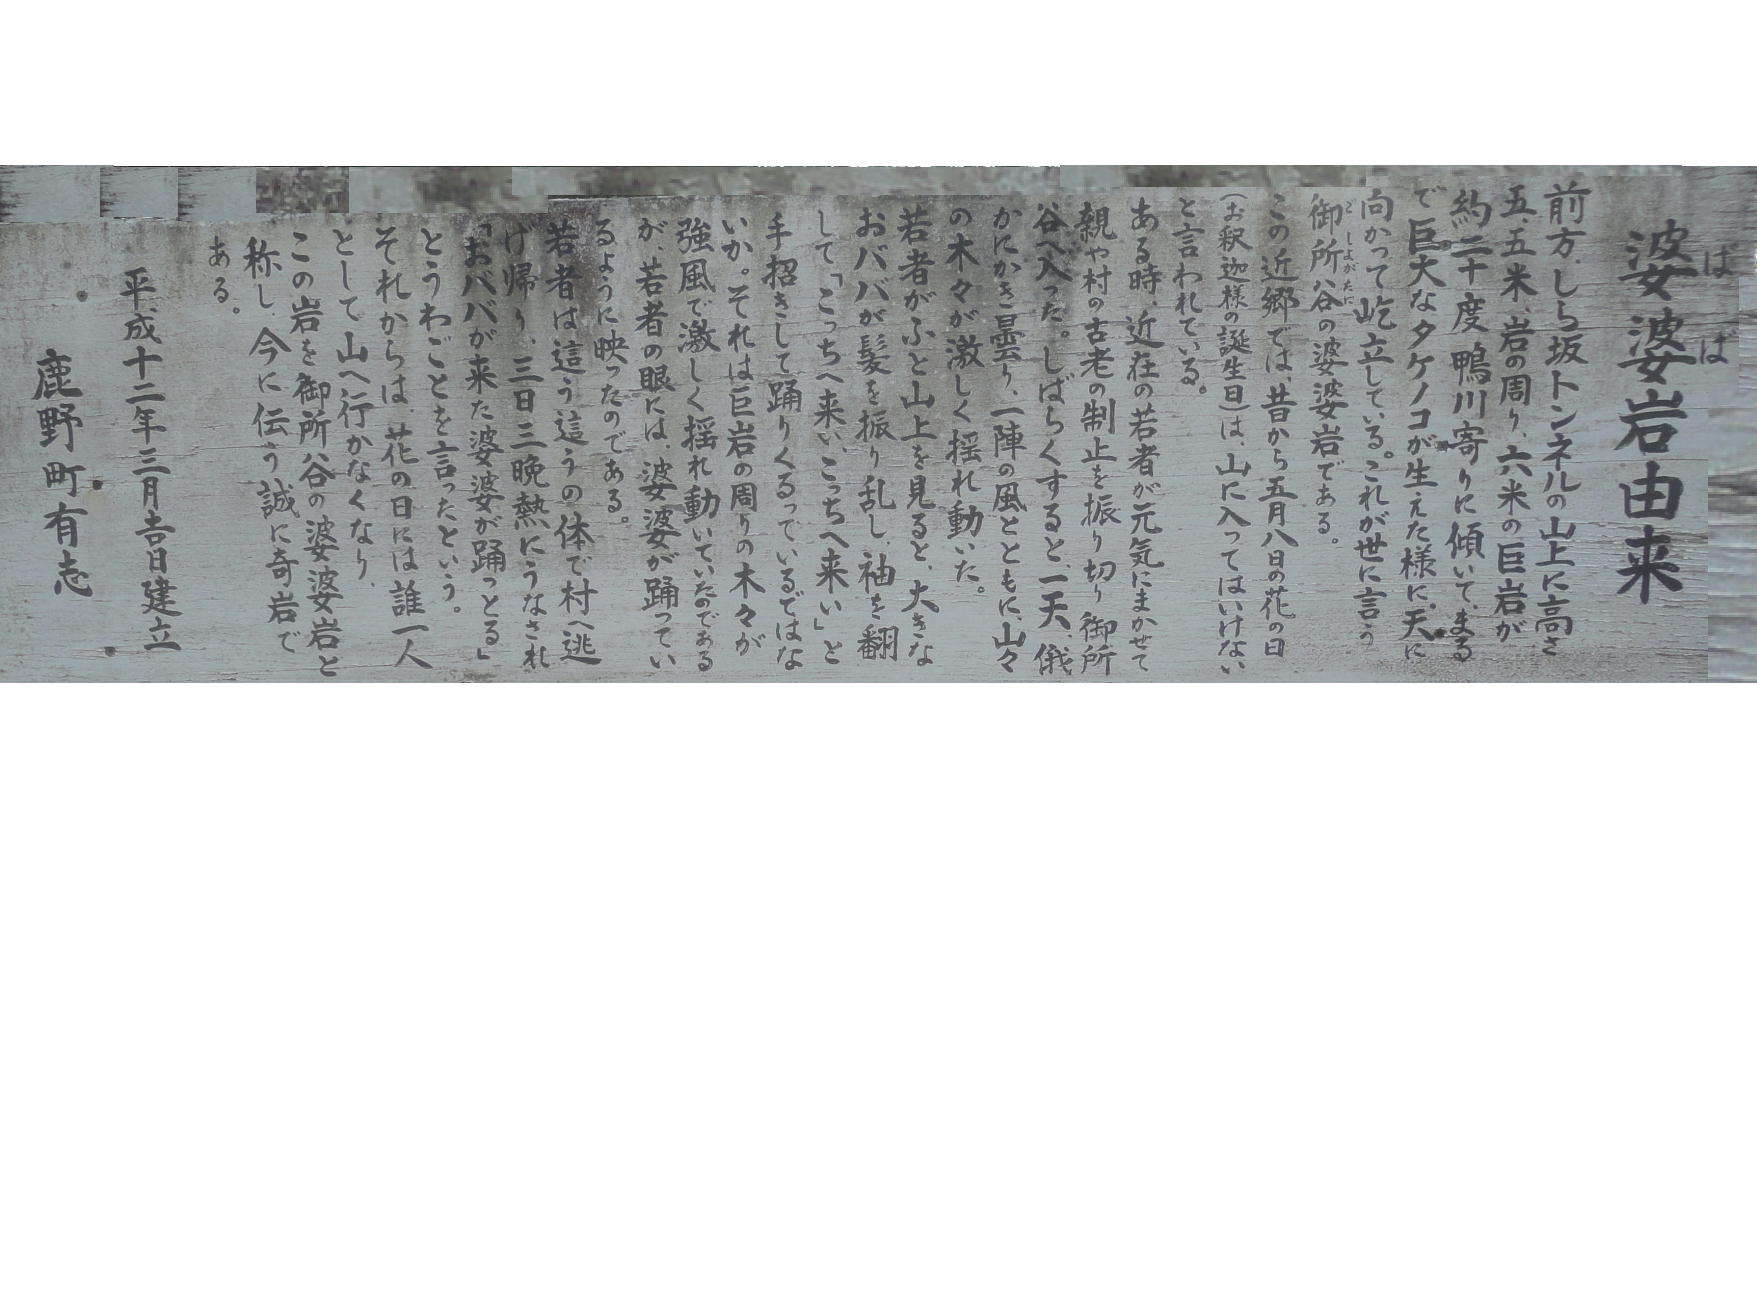 婆婆岩由来
ばば
前方、しら坂トンネルの山上に高さ
五、五米、岩の周り、六米の巨岩が
約二十度鴨川寄りに傾いて、まる
で巨大なタケノコが生えた様に、天に
向かって屹立している。これが世に言う
御所谷の婆婆岩である。
ごしよがたに
この近郷では、昔から五月八日の花の日
(お釈迦様の誕生日)は、山に入ってはいけない
と言われている。
ある時、近在の若者が元気にまかせて
親や村の古老の制止を振り切り御所
谷へ入った。しばらくすると、一天、俄
かにかき曇り、一陣の風とともに、山々
の木々が激しく揺れ動いた。
若者がふと山上を見ると、大きな
おババが髪を振り乱し、袖を翻
して「こっちへ来い、こっちへ来い」と
手招きして踊りくるっているではな
いか。それは巨岩の周りの木々が
強風で激しく揺れ動いていたのである
が、若者の眼には、婆婆が踊ってい
るように映ったのである。
若者は這う這うの体で村へ逃
げ帰り、三日三晩熱にうなされ
「おババが来た婆婆が踊っとる」
とうわごとを言ったという。
それからは、花の日には誰一人
として、山へ行かなくなり、
この岩を御所谷の婆婆岩と
称し、今に伝う誠に奇岩で
ある。
平成十二年三月吉日建立
鹿野町有志